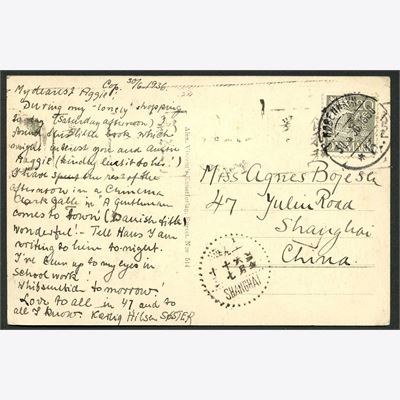 Cop. 30/6 1936.
My dearest Aggie!
During my "lonely" shopping
to day (Saturday afternoon) I
found this little book which
might interest you and Auntie
Maggie (kindly lend it to her!)
I have spent the rest of the
afternoon in a Cinema
Clark Gable in "A Gentleman
comes to Town" (Danish title)
Wonderful! - Tell Hans I am
writing to him to-night.
I've been up to my eyes in
school work!
to-morrow!
Love to all in 47 and to
all I know. Kærlig Hilsen SØSTER
Miss Agnes Bojesen
47 Yulin Road
Shanghai
China.
KØBENHAVN
SHANGHAI